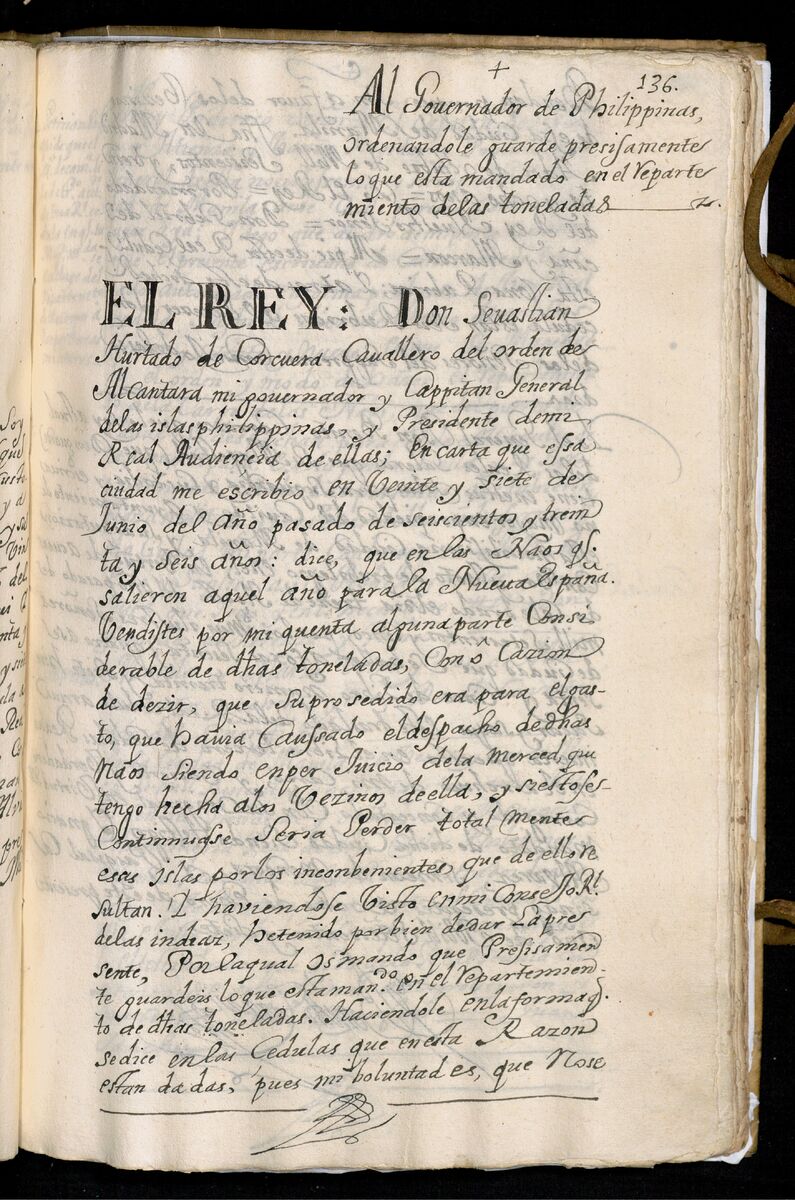 136.
+
Al Governador de Philippinas,
ordenandole guarde presisamente
lo que esta mandado en el reparte
miento de las toneladas
EL REY: Don Sevastian
Hurtado de Corcuera Cavallero del orden de
Alcantara mi governador y Cappitan General
de las islas philippinas, y Presidente de mi
Real Audiencia de ellas; En carta que essa
ciudad me escribio en Veinte y siete de
Junio del Año pasado de seiscientos y trein
ta y Seis años: dice, que en las Naos q̃.
salieron aquel año para la Nueva España.
Vendistes por mi quenta alguna parte Consi
derable de dhas toneladas, Con ôCazion
de dezir, que su prosedido era para el gas-
to, que havia Caussado el despacho de dhas
Naos siendo en per Juicio de la Merced, que
tengo hecha a los Vezinos de ella, y si esto se-
Continnuase Seria Perder total mente
esas islas por los inconbenientes, que de ello re
sultan. Y haviendose Visto en mi Consejo Rl.
de las indias, he tenido por bien de dar La pres
sente, Por la qual os mando que Presisamen
te guardeis lo que esta mando. en el repartemien-
to de dhas toneladas. Haciendole en la forma q̃.
se dice en las Cedulas que en esta Razon
estan dadas, pues mi boluntad es, que No se